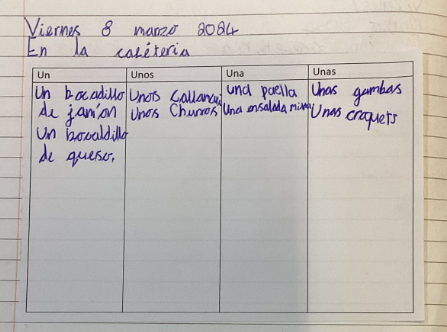 Viernes 8 marzo 2024
En la cafétería
Un Unos Una Unas
Un bocadillo Unos una paella Unas gambas
de jamón Unos Churros Una ensalada Unas croquets
Un bocaldillo
de queso.